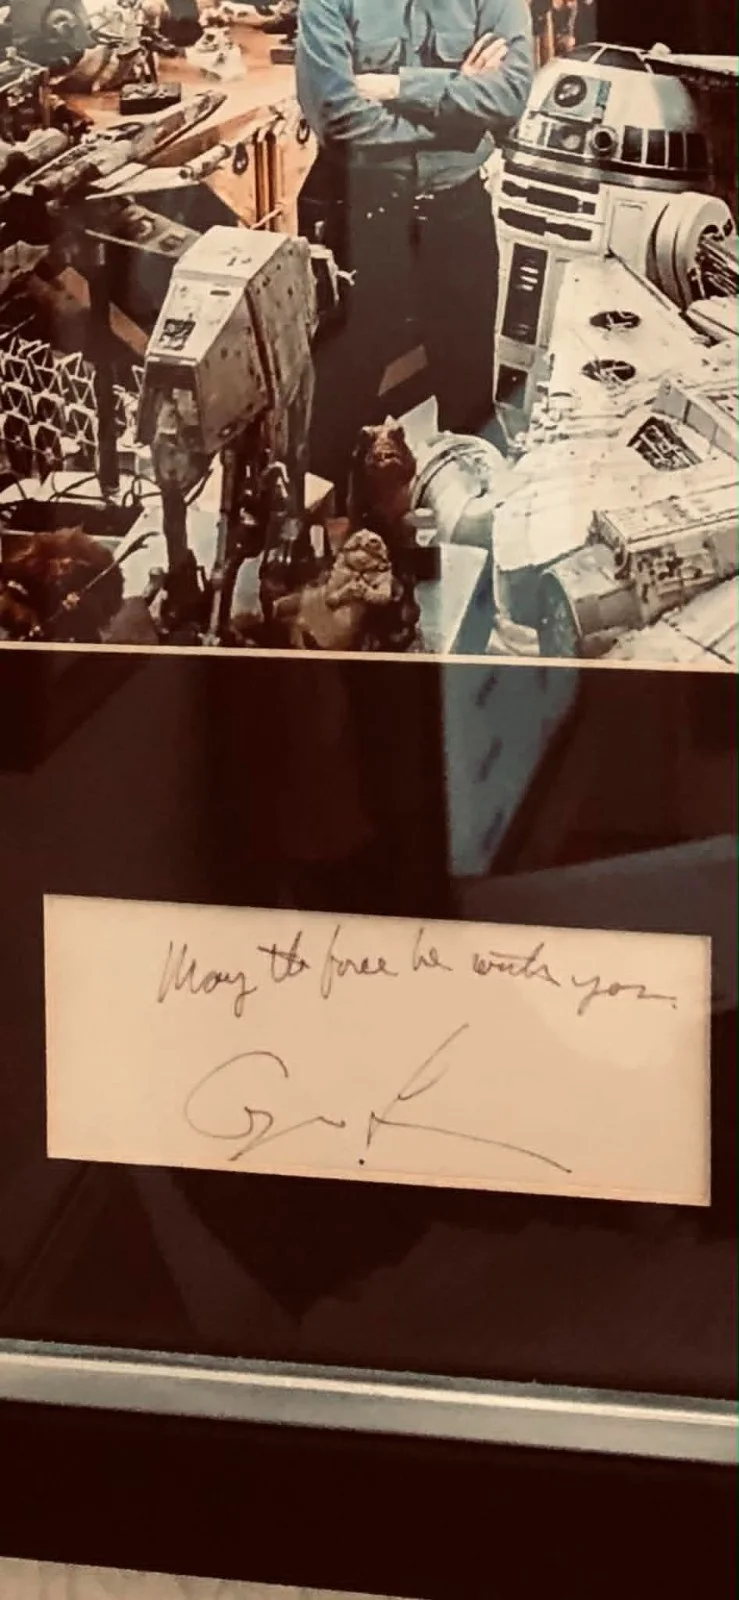 May the force be with you.